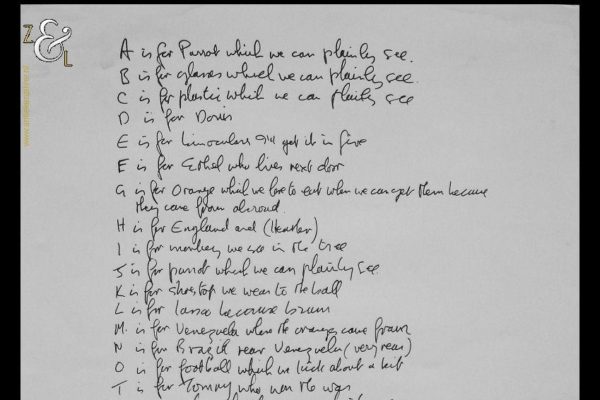 Z & L
A is for Parrot which we can plainly see.
B is for glasses which we can plainly see.
C is for plastic which we can plainly see
D is for Doris
E is for binoculars I'll get it in five
F is for Ethel who lives next door
G is for Orange which we love to eat when we can get them because
they come from abroad.
H is for England and (Heather)
I is for monkey we see in the tree
J is for parrot which we can plainly see
K is for shoetop we wear to the ball
L is for lance because brum
M is for Venezuela where the oranges come from
N is for Brazil near Venezuela (very near)
O is for football which we kick about a bit
T is for Tommy who won the war